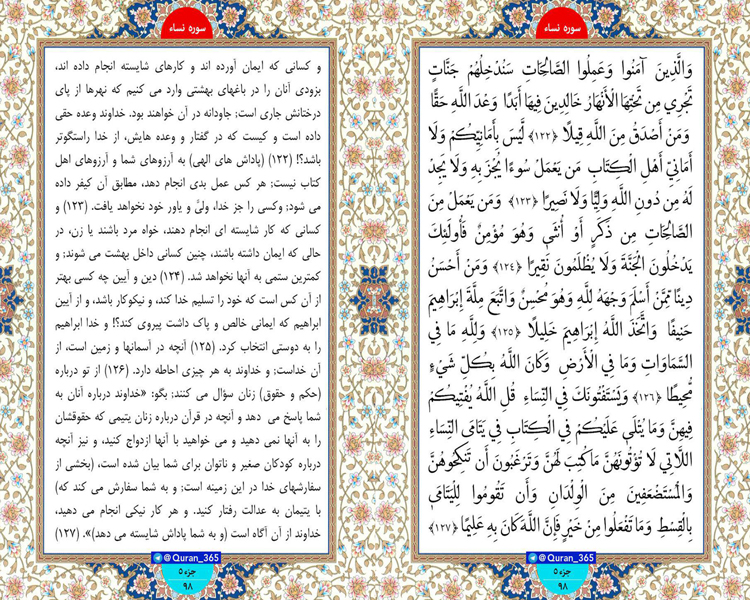 سوره نساء
وَالَّذِينَ آمَنُوا وَعَمِلُوا الصَّالِحَاتِ سَنُدْخِلُهُمْ جَنَّاتٍ
تَجْرِي مِن تَحْتِهَا الْأَنْهَارُ خَالِدِينَ فِيهَا أَبَدًا وَعْدَ اللَّهِ حَقًّا
وَمَنْ أَصْدَقُ مِنَ اللَّهِ قِيلًا ﴿۱۲۲﴾ لَّيْسَ بِأَمَانِيِّكُمْ وَلَا
أَمَانِيِّ أَهْلِ الْكِتَابِ مَن يَعْمَلْ سُوءًا يُجْزَ بِهِ وَلَا يَجِدْ
لَهُ مِن دُونِ اللَّهِ وَلِيًّا وَلَا نَصِيرًا ﴿۱۲۳﴾ وَمَن يَعْمَلْ مِنَ
الصَّالِحَاتِ مِن ذَكَرٍ أَوْ أُنثَى وَهُوَ مُؤْمِنٌ فَأُولَئِكَ
يَدْخُلُونَ الْجَنَّةَ وَلَا يُظْلَمُونَ نَقِيرًا ﴿۱۲٤﴾ وَمَنْ أَحْسَنُ
دِينًا مِّمَّنْ أَسْلَمَ وَجْهَهُ لِلَّهِ وَهُوَ مُحْسِنٌ وَاتَّبَعَ مِلَّةَ إِبْرَاهِيمَ
حَنِيفًا وَاتَّخَذَ اللَّهُ إِبْرَاهِيمَ خَلِيلًا ﴿۱۲۵﴾ وَلِلَّهِ مَا فِي
السَّمَاوَاتِ وَمَا فِي الْأَرْضِ وَكَانَ اللَّهُ بِكُلِّ شَيْءٍ
مُّحِيطًا ﴿۱۲۶﴾ وَيَسْتَفْتُونَكَ فِي النِّسَاءِ قُلِ اللَّهُ يُفْتِيكُمْ
فِيهِنَّ وَمَا يُتْلَى عَلَيْكُمْ فِي الْكِتَابِ فِي يَتَامَى النِّسَاءِ
اللَّاتِي لَا تُؤْتُونَهُنَّ مَا كُتِبَ لَهُنَّ وَتَرْغَبُونَ أَن تَنكِحُوهُنَّ
وَالْمُسْتَضْعَفِينَ مِنَ الْوِلْدَانِ وَأَن تَقُومُوا لِلْيَتَامَى
بِالْقِسْطِ وَمَا تَفْعَلُوا مِنْ خَيْرٍ فَإِنَّ اللَّهَ كَانَ بِهِ عَلِيمًا ﴿۱۲۷﴾
@Quran_365
جزء ۵
۹۸
سوره نساء
و کسانی که ایمان آورده اند و کارهای شایسته انجام داده اند،
بزودی آنان را در باغهای بهشتی وارد می کنیم که نهرها از پای
درختانش جاری است؛ جاودانه در آن خواهند بود. خداوند وعده حقی
داده است و کیست که در گفتار و وعده هایش، از خدا راستگوتر
باشد؟! (۱۲۲) (پاداش های الهی) به آرزوهای شما و آرزوهای اهل
کتاب نیست؛ هر کس عمل بدی انجام دهد، مطابق آن کیفر داده
می شود؛ وکسی را جز خدا، ولیّ و یاور خود نخواهد یافت. (۱۲۳) و
کسانی که کار شایسته ای انجام دهند، خواه مرد باشند یا زن، در
حالی که ایمان داشته باشند، چنین کسانی داخل بهشت می شوند؛ و
کمترین ستمی به آنها نخواهد شد. (۱۲۴) دین و آیین چه کسی بهتر
از آن کس است که خود را تسلیم خدا کند، و نیکوکار باشد، و از آیین
ابراهیم که ایمانی خالص و پاک داشت پیروی کند؟! و خدا ابراهیم
را به دوستی انتخاب کرد. (۱۲۵) آنچه در آسمانها و زمین است، از
آن خداست؛ و خداوند به هر چیزی احاطه دارد. (۱۲۶) از تو درباره
(حکم و حقوق) زنان سؤال می کنند؛ بگو: «خداوند درباره آنان به
شما پاسخ می دهد و آنچه در قرآن درباره زنان یتیمی که حقوقشان
را به آنها نمی دهید و می خواهید با آنها ازدواج کنید، و نیز آنچه
درباره کودکان صغیر و ناتوان برای شما بیان شده است، (بخشی از
سفارشهای خدا در این زمینه است؛ و به شما سفارش می کند که)
با یتیمان به عدالت رفتار کنید. و هر کار نیکی انجام می دهید،
خداوند از آن آگاه است (و به شما پاداش شایسته می دهد)». (۱۲۷)
@Quran_365
جزء ۵
۹۸